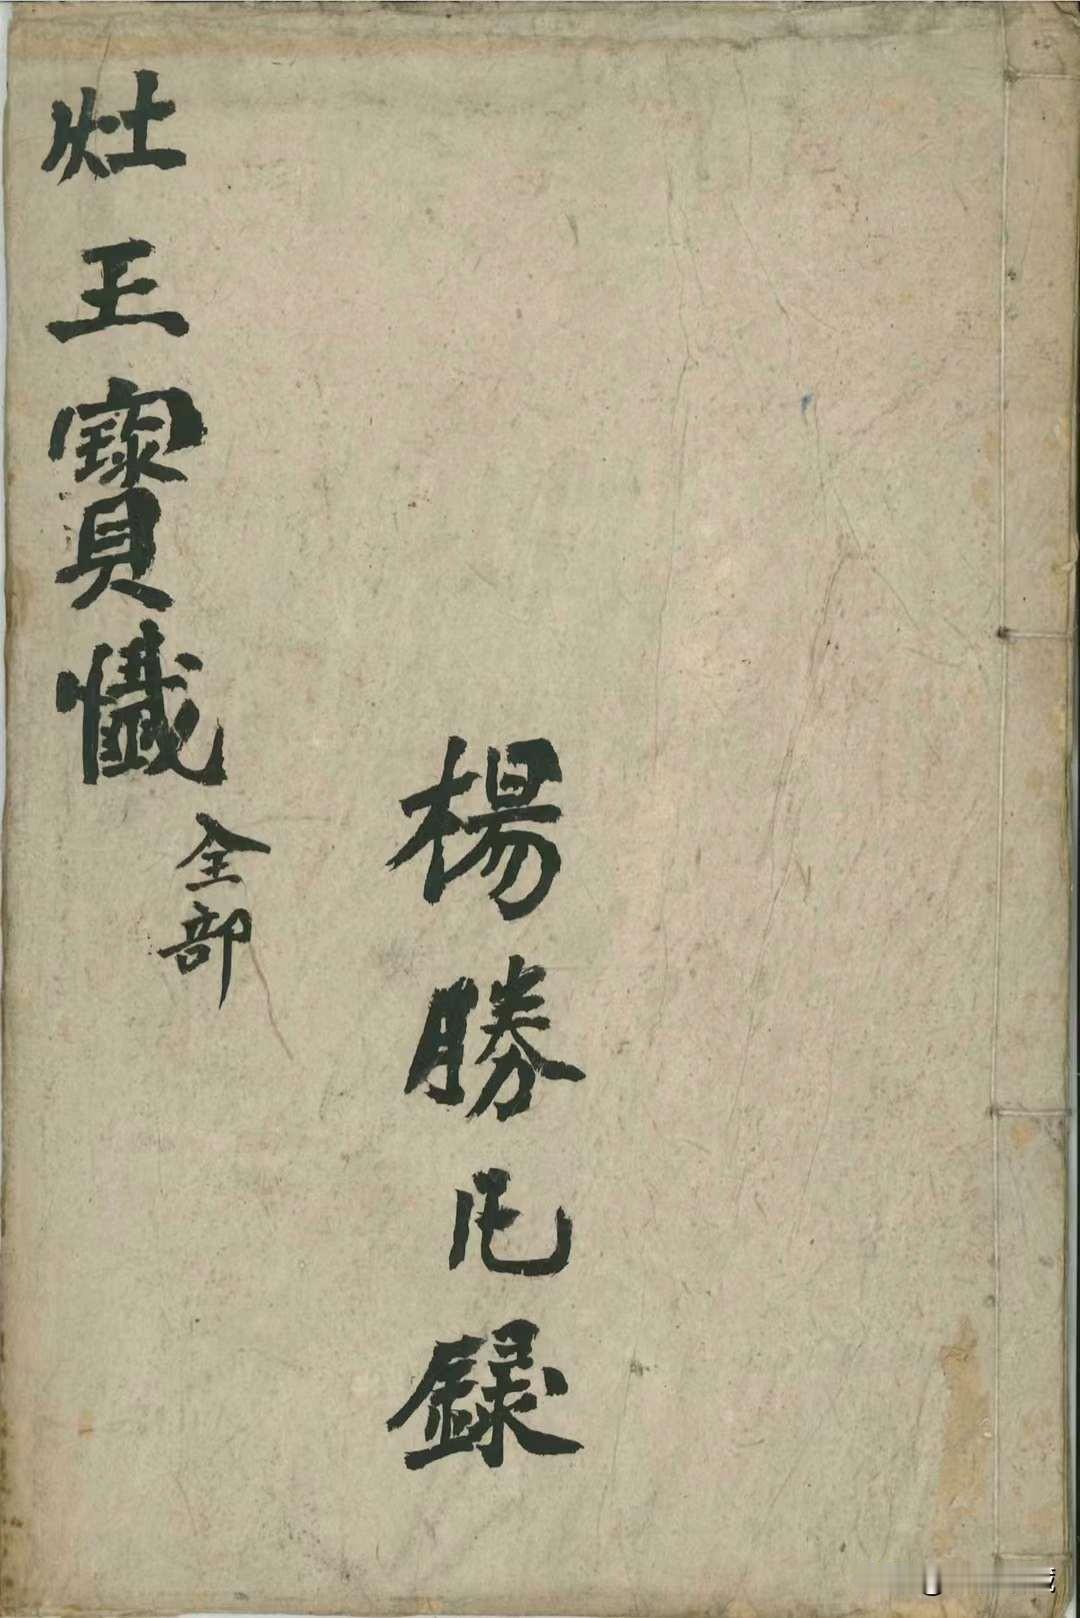 灶王寳懺
全部
楊勝錄